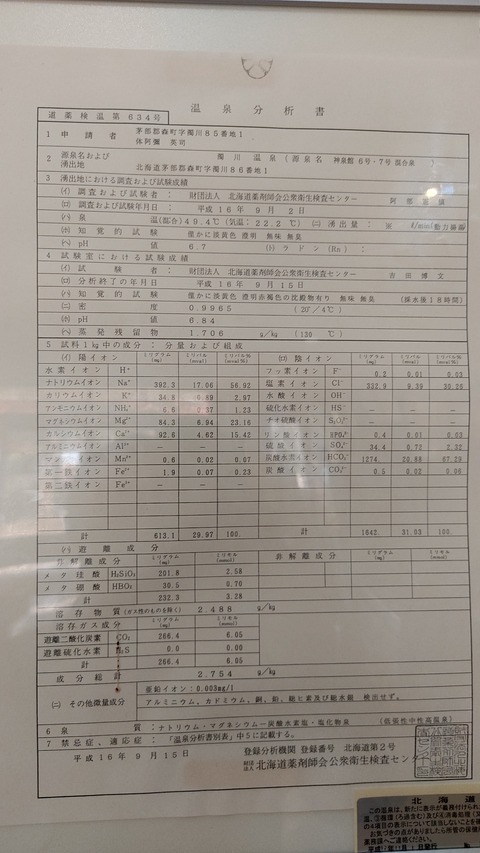 温泉分析書
道薬検温第634号
1 申請者 茅部郡森町字濁川85番地1
2 源泉名および湧出地 濁川温泉(源泉名 神泉館6号・7号 混合泉
北海道茅部郡森町字濁川86番地1
3 湧出地における調査および試験成績
(イ) 調査および試験者: 財団法人 北海道薬剤師会公衆衛生検査センター
(ロ) 調査および試験年月日: 平成16年9月2日
(ハ) 泉温(混合)49.4℃(気温:22.2℃) (ニ) 湧出量: ※ ℓ/min(動力揚湯)
(ホ) 知覚的試験 僅かに淡黄色 澄明 無味 無臭
(ヘ) pH値 6.7 (ト) ラドン(Rn):
4 試験室における試験成績
(イ) 試験者: 財団法人 北海道薬剤師会公衆衛生検査センター 吉田博文
(ロ) 分析終了の年月日 平成16年9月15日
(ハ) 知覚的試験 僅かに淡黄色 澄明赤褐色の沈殿物有り 無味 無臭 (採水後18時間)
(ニ) 密度 0.9965 (20°/4℃)
(ホ) pH値 6.84
(ヘ) 蒸発残留物 1.706 g/kg (130℃)
5 試料1kg中の成分:分量および組成
(イ) 陽イオン ミリグラム(mg) ミリバル(mval) ミリバル%(mval%)
水素イオン H⁺ － － －
ナトリウムイオン Na⁺ 392.3 17.06 56.92
カリウムイオン K⁺ 34.8 0.89 2.97
アンモニウムイオン NH₄⁺ 6.6 0.37 1.23
マグネシウムイオン Mg²⁺ 84.3 6.94 23.16
カルシウムイオン Ca²⁺ 92.6 4.62 15.42
アルミニウムイオン Al³⁺ － － －
マンガンイオン Mn²⁺ 0.6 0.02 0.07
第一鉄イオン Fe²⁺ 1.9 0.07 0.23
第二鉄イオン Fe³⁺ － － －
計 613.1 29.97 100.
(ロ) 陰イオン ミリグラム(mg) ミリバル(mval) ミリバル%(mval%)
フッ素イオン F⁻ 0.2 0.01 0.03
塩素イオン Cl⁻ 332.9 9.39 30.26
水酸イオン OH⁻ － － －
硫化水素イオン HS⁻ － － －
チオ硫酸イオン S₂O₃²⁻ － － －
リン酸イオン HPO₄²⁻ 0.4 0.01 0.03
硫酸イオン SO₄²⁻ 34.4 0.72 2.32
炭酸水素イオン HCO₃⁻ 1274. 20.88 67.29
炭酸イオン CO₃²⁻ 0.5 0.02 0.06
計 1642. 31.03 100.
(ハ) 遊離成分
非解離成分 ミリグラム(mg) ミリモル(mmol)
メタ珪酸 H₂SiO₃ 201.8 2.58
メタ硼酸 HBO₂ 30.5 0.70
計 232.3 3.28
非解離成分 ミリグラム(mg) ミリモル(mmol)
溶存物質(ガス性のものを除く) 2.488 g/kg
溶存ガス成分 ミリグラム(mg) ミリモル(mmol)
遊離二酸化炭素 CO₂ 266.4 6.05
遊離硫化水素 H₂S 0.0 0.00
計 266.4 6.05
成分総計 2.754 g/kg
(ニ) その他微量成分 亜鉛イオン:0.003mg/l
アルミニウム、カドミウム、銅、鉛、総ヒ素及び総水銀 検出せず。
6 泉質:ナトリウム・マグネシウム－炭酸水素塩・塩化物泉 (低張性中性高温泉)
7 禁忌症、適応症:「温泉分析書別表」中5に記載する。
平成16年9月15日
登録分析機関 登録番号 北海道第2号
財団法人 北海道薬剤師会公衆衛生検査センター
北海道
この温泉は、新たに表示が義務付けられ